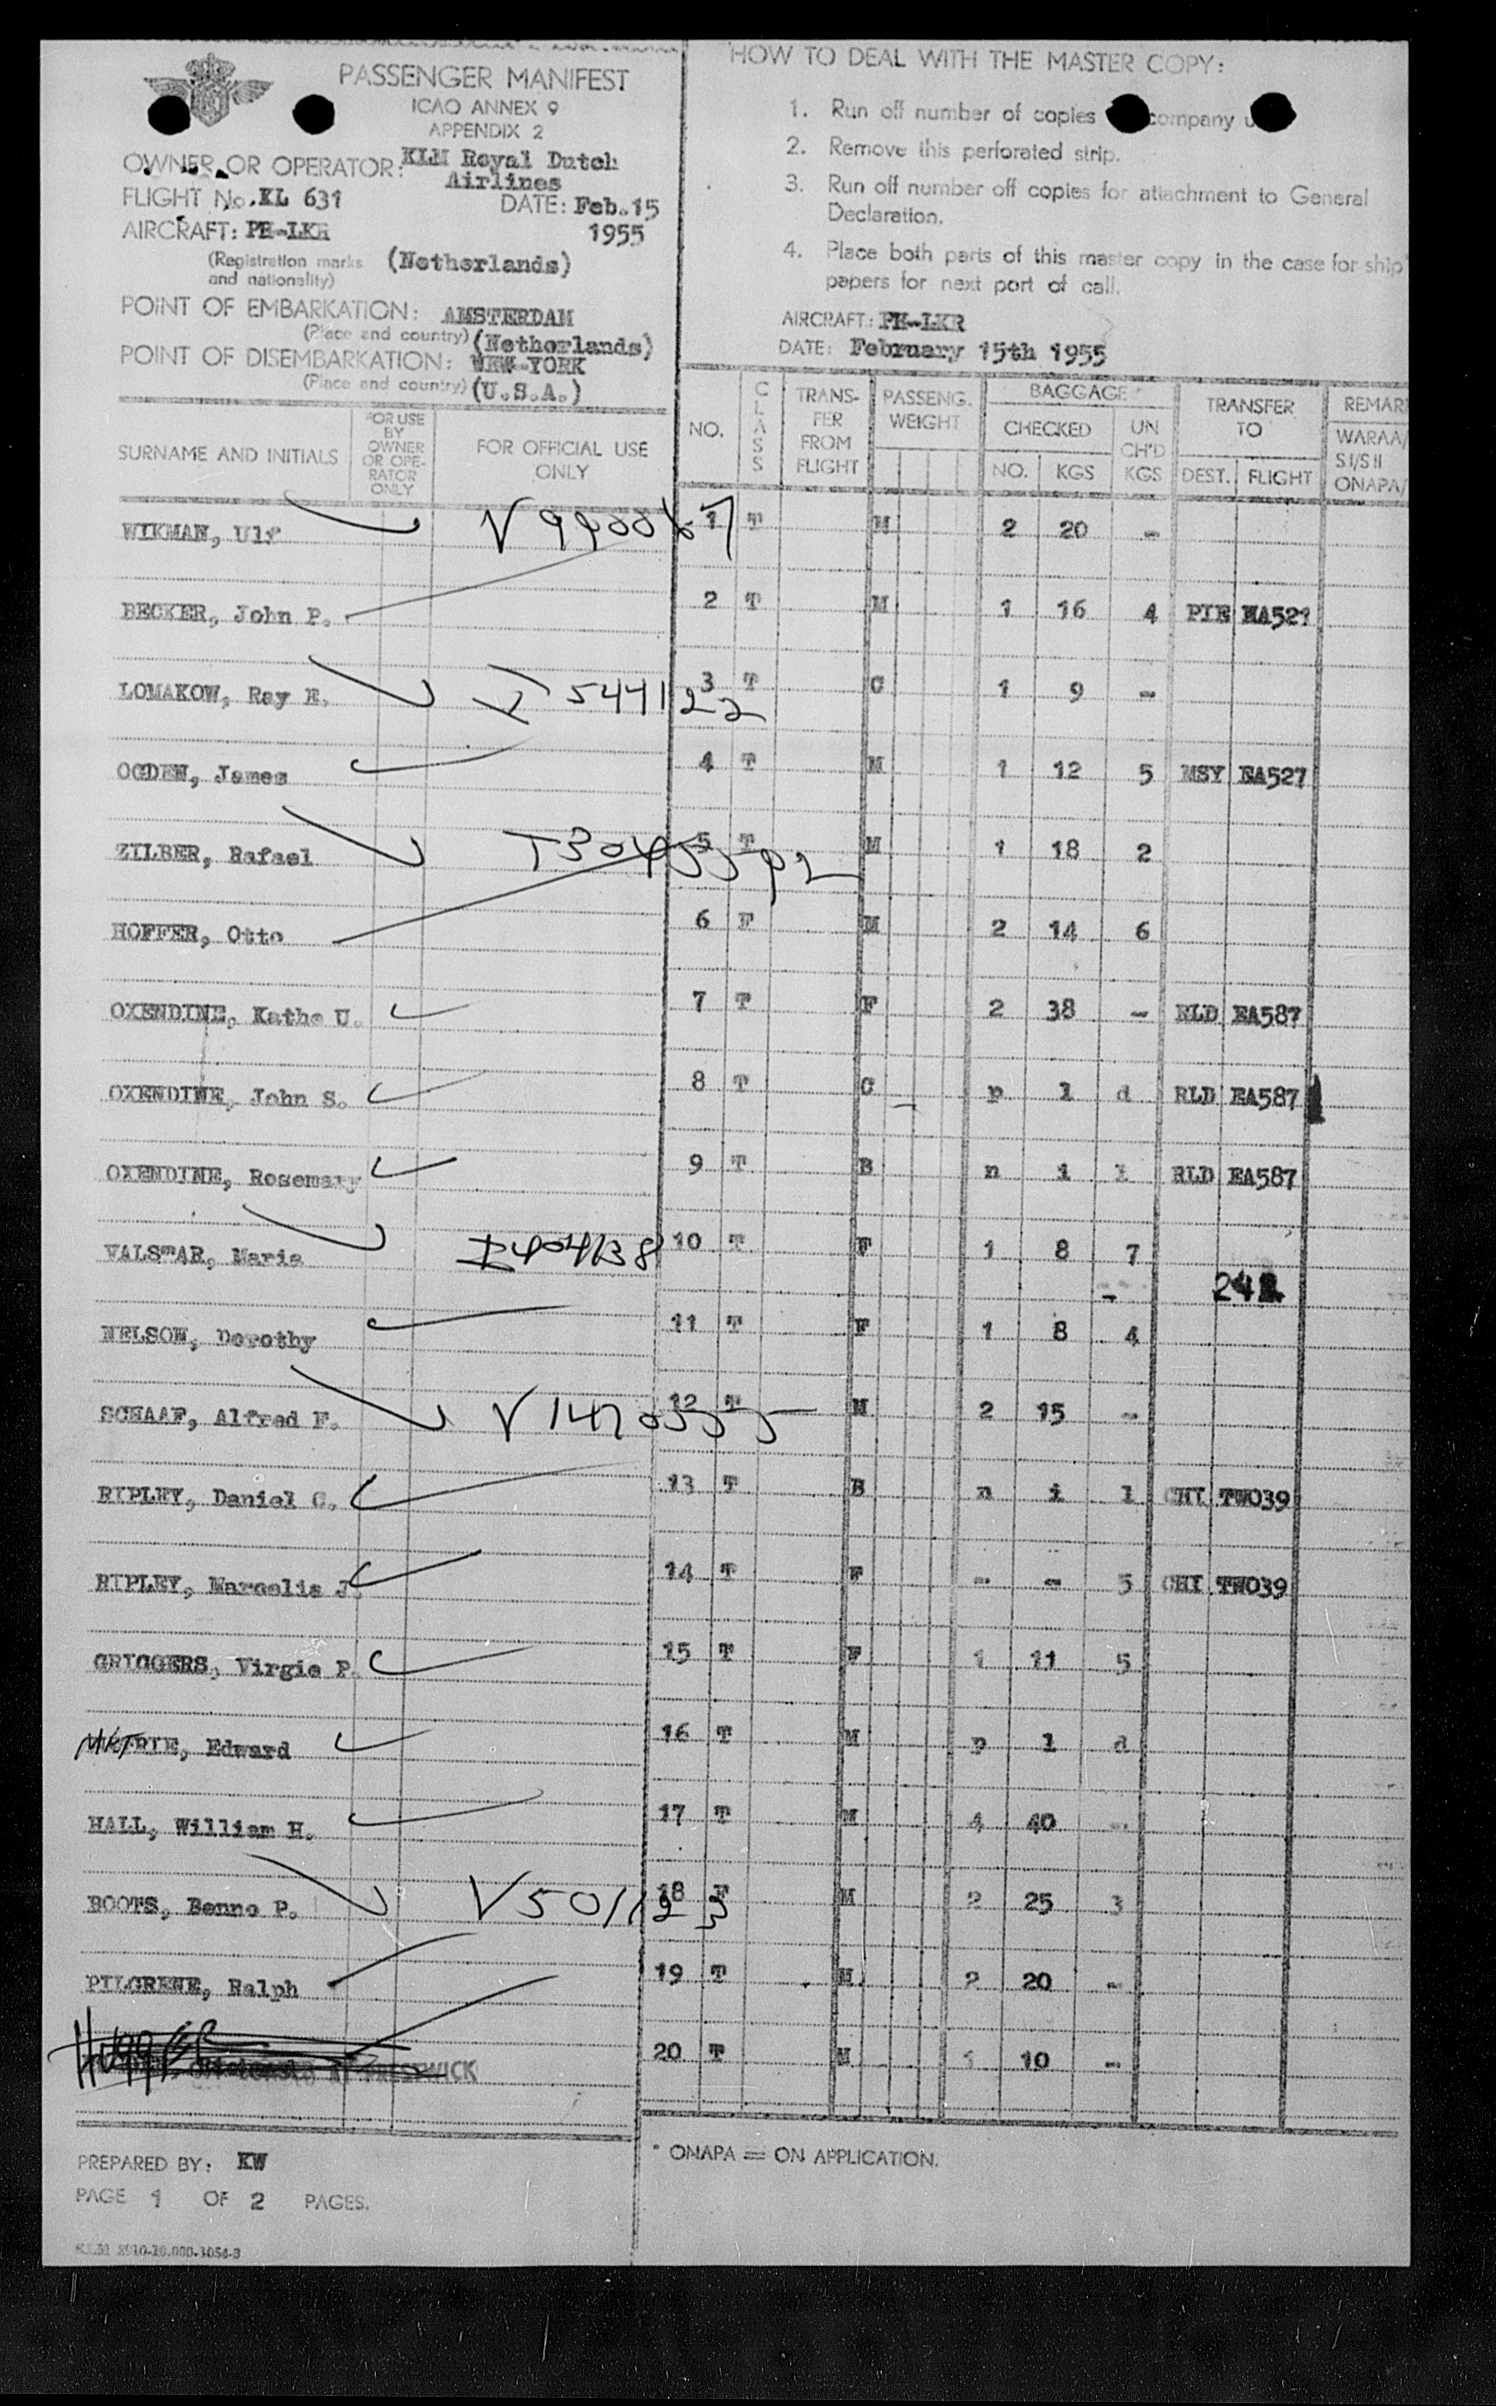 PASSENGER MANIFEST
ICAO ANNEX 9
APPENDIX 2
OWNER OR OPERATOR: KLM Royal Dutch
Airlines
FLIGHT No. KL 631 DATE: Feb. 15
AIRCRAFT: PH-LKR 1955
(Registration marks and nationality) (Netherlands)
POINT OF EMBARKATION: AMSTERDAM
(Place and country) (Netherlands)
POINT OF DISEMBARKATION: NEW-YORK
(Place and country) (U.S.A.)
HOW TO DEAL WITH THE MASTER COPY:
1. Run off number of copies company
2. Remove this perforated strip.
3. Run off number off copies for attachment to General
Declaration.
4. Place both parts of this master copy in the case for ship'
papers for next port of call.
AIRCRAFT: PH-LKR
DATE: February 15th 1955
SURNAME AND INITIALS FOR USE BY OWNER OR OPE-RATOR ONLY FOR OFFICIAL USE ONLY NO. CLASS TRANS-FER FROM FLIGHT PASSENG. WEIGHT BAGGAGE CHECKED NO. KGS UN CH'D KGS TRANSFER TO DEST. FLIGHT REMAR WARAA/ SI/SII ONAPA/
WIKMAN, Ulf V 9900 1 T M 2 20 -
BECKER, John P. 2 T M 1 16 4 PIE EA521
LOMAKOW, Ray E. 544122 3 T C 1 9 -
OGDEN, James 4 T M 1 12 5 MSY EA527
ZILBER, Rafael 5 T M 1 18 2
HOFFER, Otto 6 F M 2 14 6
OXENDINE, Kathe U. 7 T F 2 38 - RLD EA587
OXENDINE, John S. 8 T C p l d RLD EA587
OXENDINE, Rosemary 9 T B n i l RLD EA587
VALSTAR, Maria 10 T F 1 8 7
- 242
NELSON, Dorothy 11 T F 1 8 4
SCHAAF, Alfred F. V 1470555 12 T M 2 15 -
RIPLEY, Daniel G. 13 T B n i l CHI TW039
RIPLEY, Margelis J. 14 T F - - 5 CHI TW039
GRIGGERS, Virgie P. 15 T F 1 11 5
Edward 16 T M p l d
HALL, William H. 17 T M 4 40 -
BOOTS, Benno P. V 501123 18 F M 2 25 3
PILGRENE, Ralph 19 T M 2 20 -
PRESTWICK 20 T M 1 10 -
PREPARED BY: KW
PAGE 1 OF 2 PAGES.
* ONAPA = ON APPLICATION.